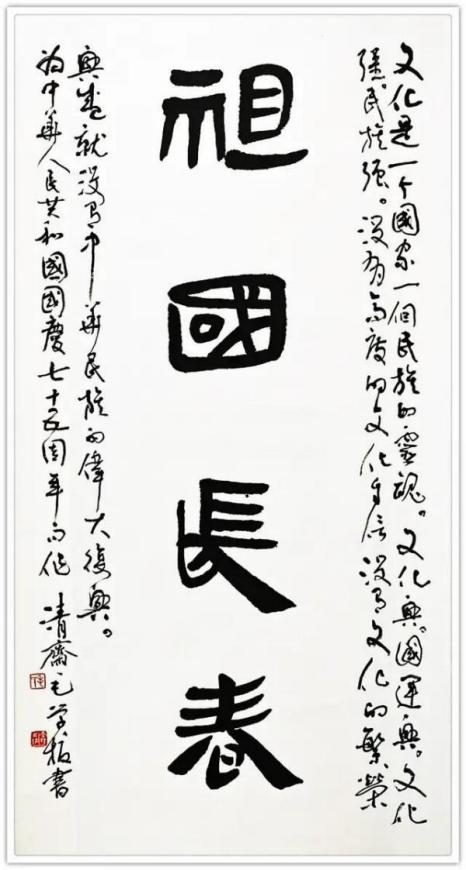 祖國長春
文化是一个國家一個民族的靈魂。文化興。國運興。文化
强。民族强。没有高度的文化自信没有文化的繁榮
興盛就没有中華民族的偉大復興。
为中華人民共和國國慶七十五周年而作 清齋毛学